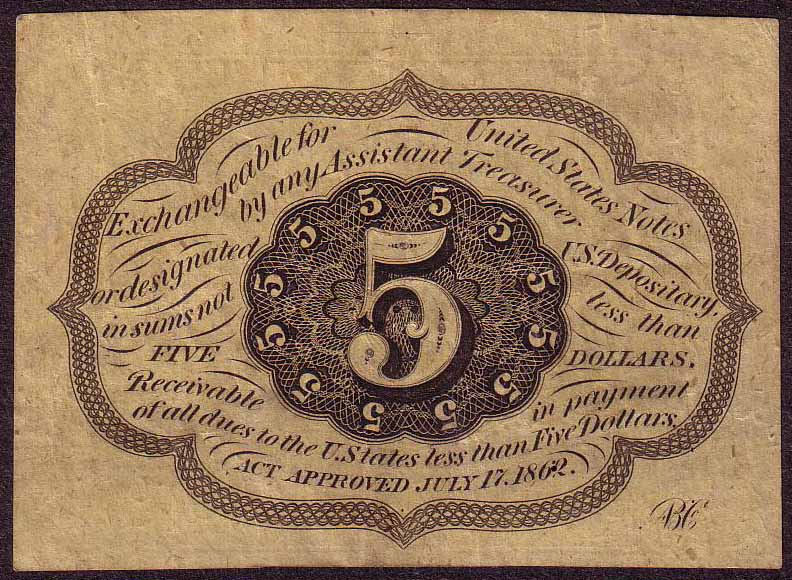 Exchangeable for United States Notes
by any Assistant Treasurer
or designated U.S. Depositary,
in sums not less than
FIVE DOLLARS.
Receivable in payment
of all dues to the U. States less than Five Dollars,
ACT APPROVED JULY 17. 1862.
5
5
5
5
5
5
5
5
5
5
5
5
5